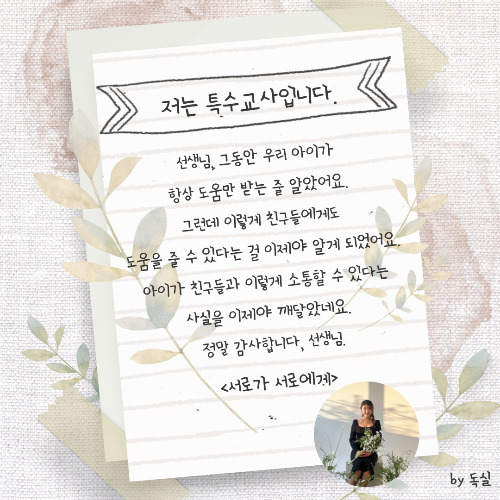 저는 특수교사입니다.
선생님, 그동안 우리 아이가
항상 도움만 받는 줄 알았어요.
그런데 이렇게 친구들에게도
도움을 줄 수 있다는 걸 이제야 알게 되었어요.
아이가 친구들과 이렇게 소통할 수 있다는
사실을 이제야 깨달았네요.
정말 감사합니다, 선생님.
<서로가 서로에게>
by 독실